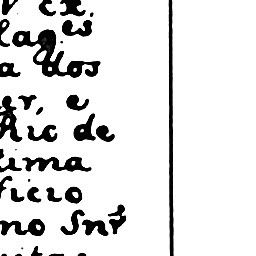 V Ex.
lag.es
a dos
er, e
Ric de
cima
ficio
no Snr̃